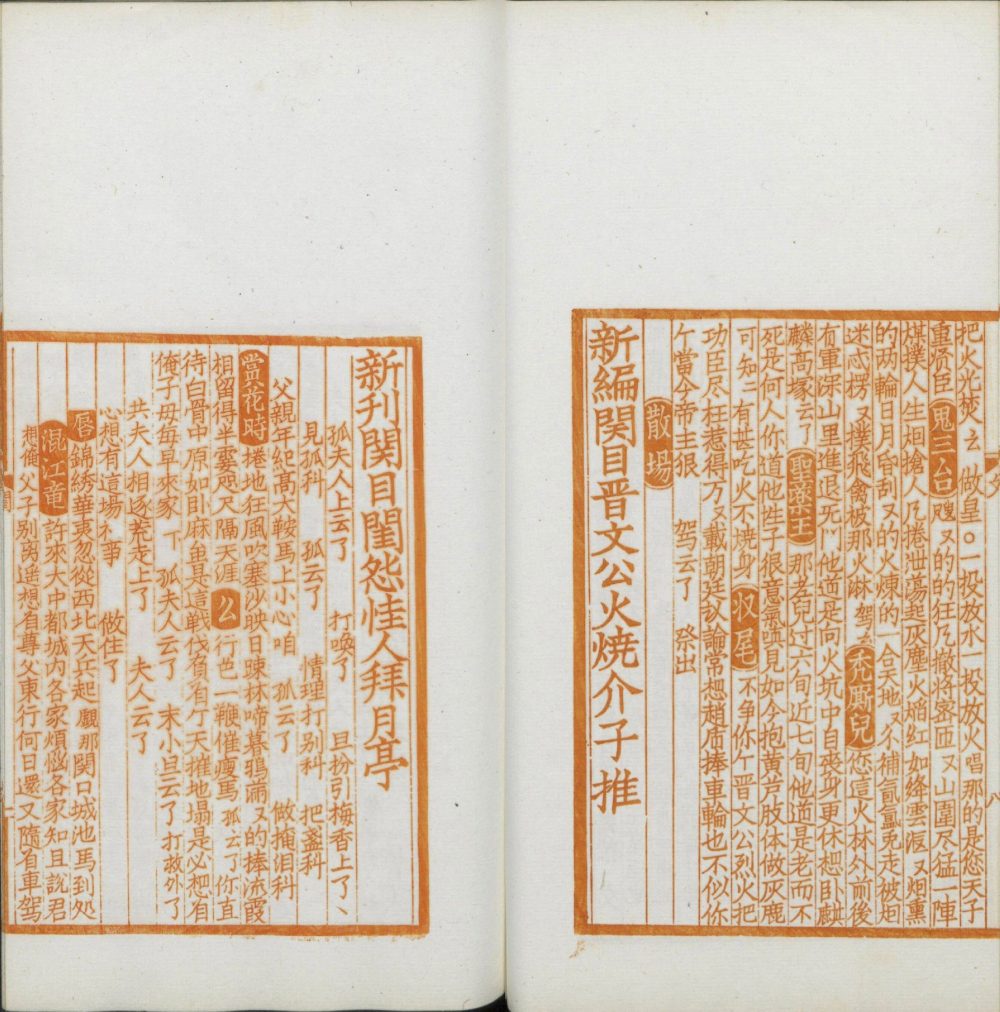 把火光焚么 做皇○一投放水一投放火唱那的是您天子
重賢臣 鬼三台 颩又的的狂凡撤將密匝又山圍尽猛一陣
煤撲人生烟搶人凡捲泄蕩起灰塵火熖紅如絳雲滾又烟熏
的两輪日月昏刮又的火煉的一合天地又分捕氤氳兎走被炮
迷忒楞又撲飛禽被那火淋 駕云 秃厮兒 您這火林外前後
有軍深山里進退死門他道是向火坑中自喪身更休想卧麒
麟高塚云了 聖藥王 那老兒过六旬近七旬他道是老而不
死是何人你道他性子很意氣嗔見如今抱黄芦肢体做灰鹿
可知二有甚吃火不燒身 収尾 不争你个晋文公烈火把
功臣尽枉惹得万又載朝廷议論常想趙盾捧車輪也不似你
个當今帝主狠 駕云了 祭出
散場
新編関目晋文公火燒介子推
新刊関目閨怨佳人拜月亭
孤夫人上云了 打喚了 旦扮引梅香上了、
見孤科 孤云了 情理打别科 把盞科
父親年紀高大鞍馬上小心咱 孤云了 做掩泪科
賞花時 捲地狂風吹塞沙映日踈林啼暮鴉滿又的捧流霞
相留得半霎咫尺隔天涯 么 行色一鞭催瘦馬 孤云了你直
待白骨中原如卧麻虽是這戰伐負有个天摧地塌是必想有
俺子母每早來家 下 孤夫人云了 末小旦云了打救外了
共夫人相逐荒走上了 夫人云了
心想有這場禾事 做住了
唇 錦綉華夷忽從西北天兵起覷那関口城池馬到処
混江竜 許來大中都城内各家煩惱各家知且説君
想俺父子别离遥想有尊父東行何日還又隨有車駕